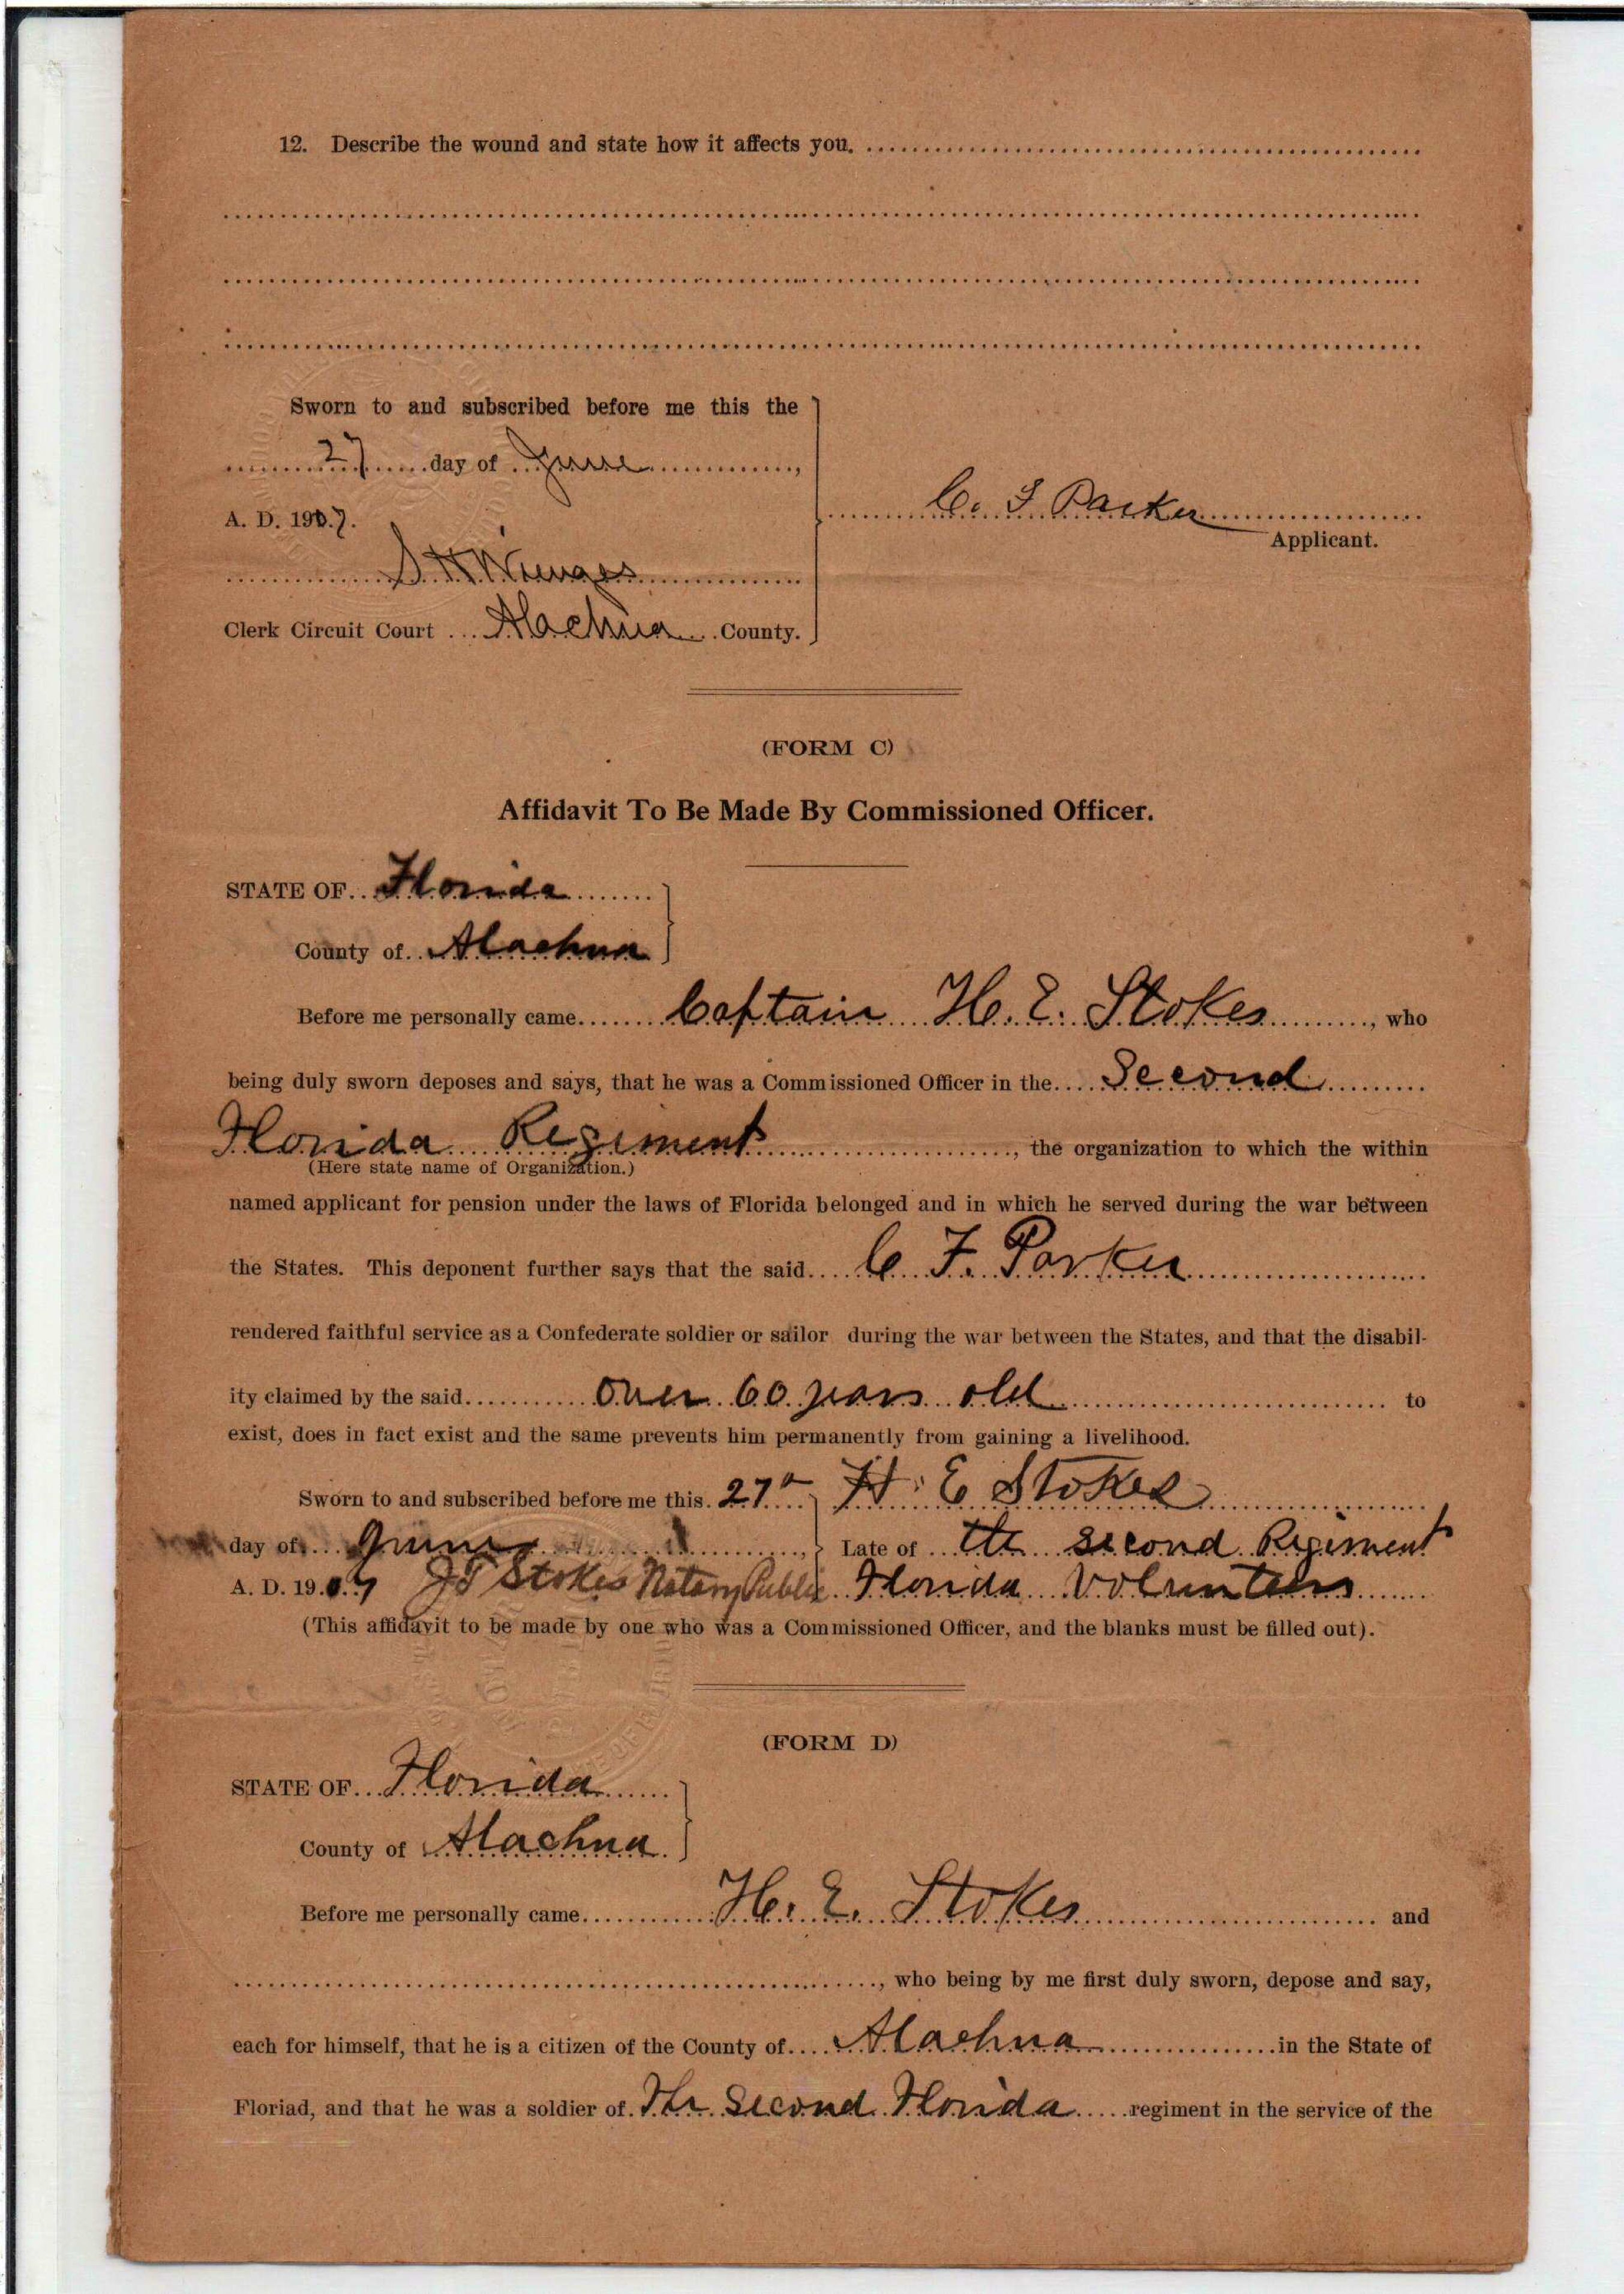 12. Describe the wound and state how it affects you.
Sworn to and subscribed before me this the
27 day of June,
A. D. 1907.
C. F Parker
Applicant.
S H Wienges
Clerk Circuit Court Alachua County.
(FORM C)
Affidavit To Be Made By Commissioned Officer.
STATE OF Florida
County of Alachua
Before me personally came Captain H. E. Stokes, who
being duly sworn deposes and says, that he was a Commissioned Officer in the Second
Florida Regiment, the organization to which the within
(Here state name of Organization.)
named applicant for pension under the laws of Florida belonged and in which he served during the war between
the States. This deponent further says that the said C. F. Parker
rendered faithful service as a Confederate soldier or sailor during the war between the States, and that the disabil-
ity claimed by the said over 60 years old to
exist, does in fact exist and the same prevents him permanently from gaining a livelihood.
Sworn to and subscribed before me this 27th H. E Stokes
day of June, Late of the second Regiment
A. D. 1907 J T Stokes Notary Public Florida Volunteers
(This affidavit to be made by one who was a Commissioned Officer, and the blanks must be filled out).
(FORM D)
STATE OF Florida
County of Alachua
Before me personally came H. E. Stokes and
, who being by me first duly sworn, depose and say,
each for himself, that he is a citizen of the County of Alachua in the State of
Floriad, and that he was a soldier of The Second Florida regiment in the service of the